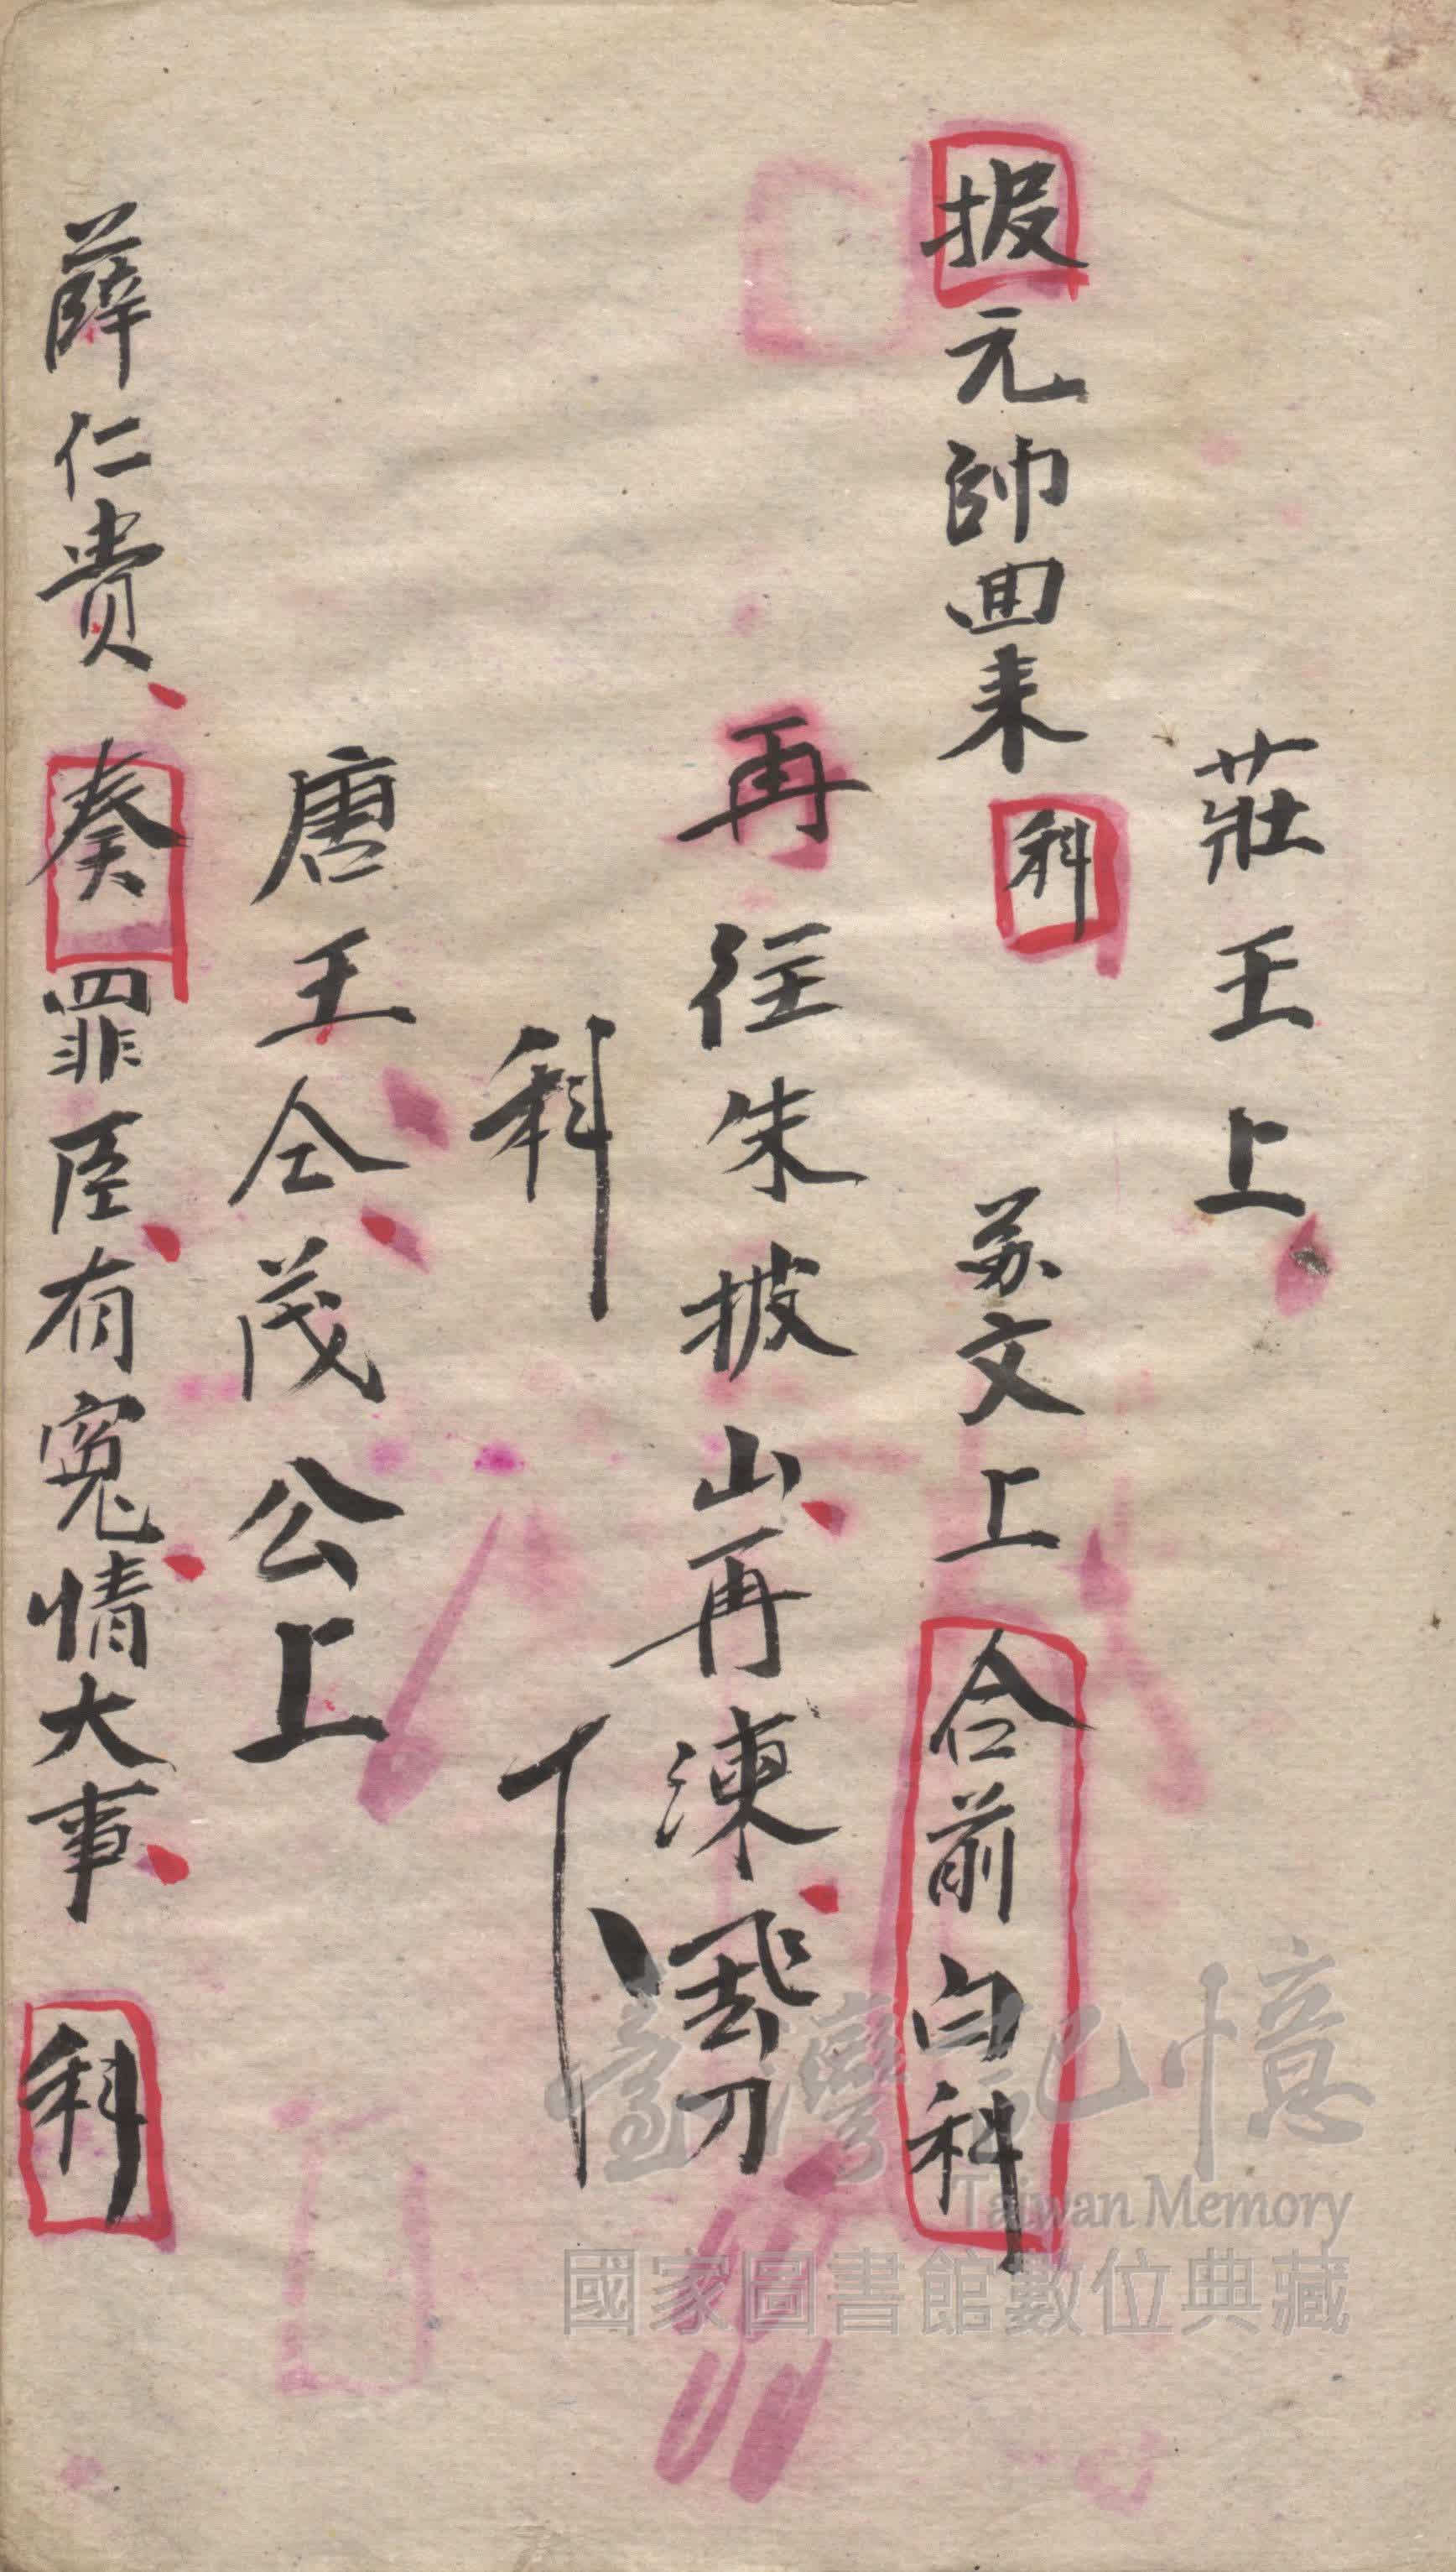 莊王上
报元帥回来 科 苏文上 合前白科
再往朱披山再凍飛刀
科 下
唐王仝茂公上
薛仁贵 奏 罪臣有冤情大事 科
臺灣記憶
Taiwan Memory
國家圖書館數位典藏